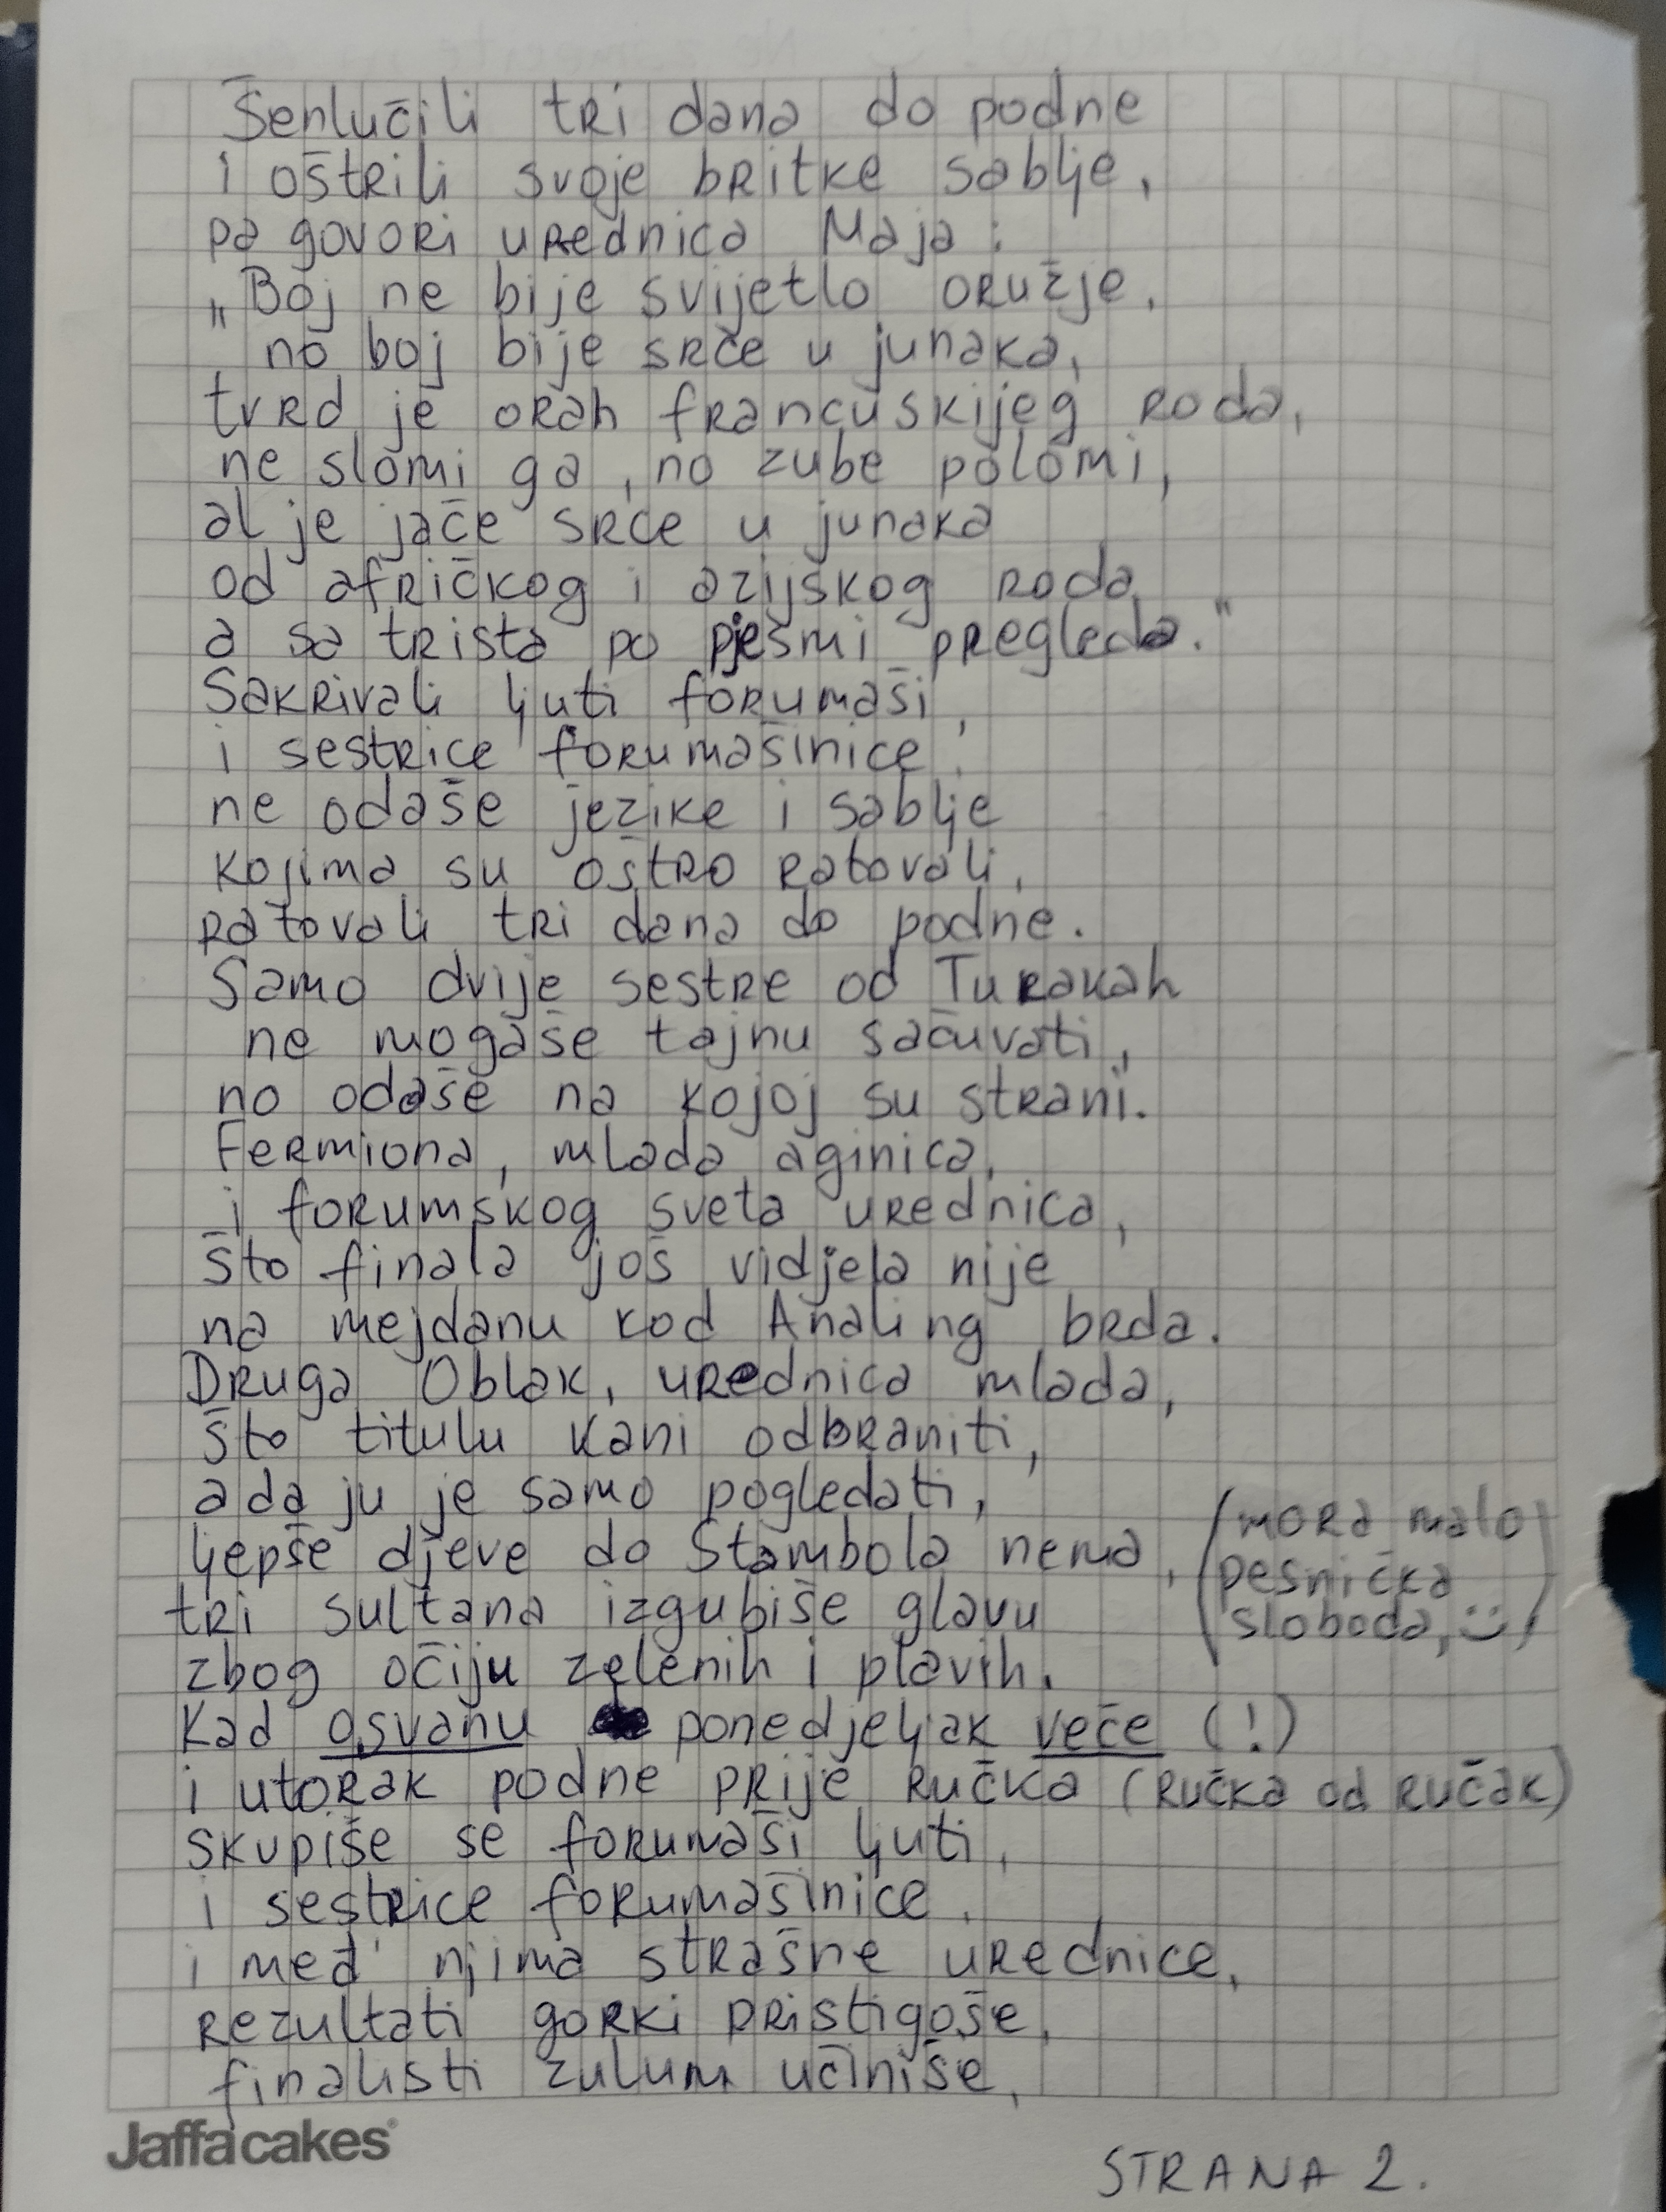 Šenlučili tri dana do podne
i oštrili svoje britke sablje,
pa govori urednica Maja:
„Boj ne bije svijetlo oružje,
no boj bije srce u junaka,
tvrd je orah francuskijeg roda,
ne slomi ga, no zube polomi,
al je jače srce u junaka
od afričkog i azijskog roda
a sa trista po pjesmi pregleda."
Sakrivali ljuti forumaši,
i sestrice forumašinice,
ne odaše jezike i sablje
kojima su oštro ratovali,
ratovali tri dana do podne.
Samo dvije sestre od Turakah
ne mogaše tajnu sačuvati,
no odaše na kojoj su strani.
Fermiona, mlada aginica,
i forumskog sveta urednica,
što finala još vidjela nije
na mejdanu kod Analing brda.
Druga Oblak, urednica mlada,
što titulu kani odbraniti,
a da ju je samo pogledati,
ljepše djeve do Stambola nema, (mora malo
pesnička
sloboda, :))
tri sultana izgubiše glavu
zbog očiju zelenih i plavih.
Kad osvanu ponedjeljak veče (!)
i utorak podne prije ručka (ručka od ručak)
skupiše se forumaši ljuti,
i sestrice forumašinice,
i međ' njima strašne urednice,
rezultati gorki pristigoše,
finalisti zulum učiniše,
Jaffa cakes®
STRANA 2.